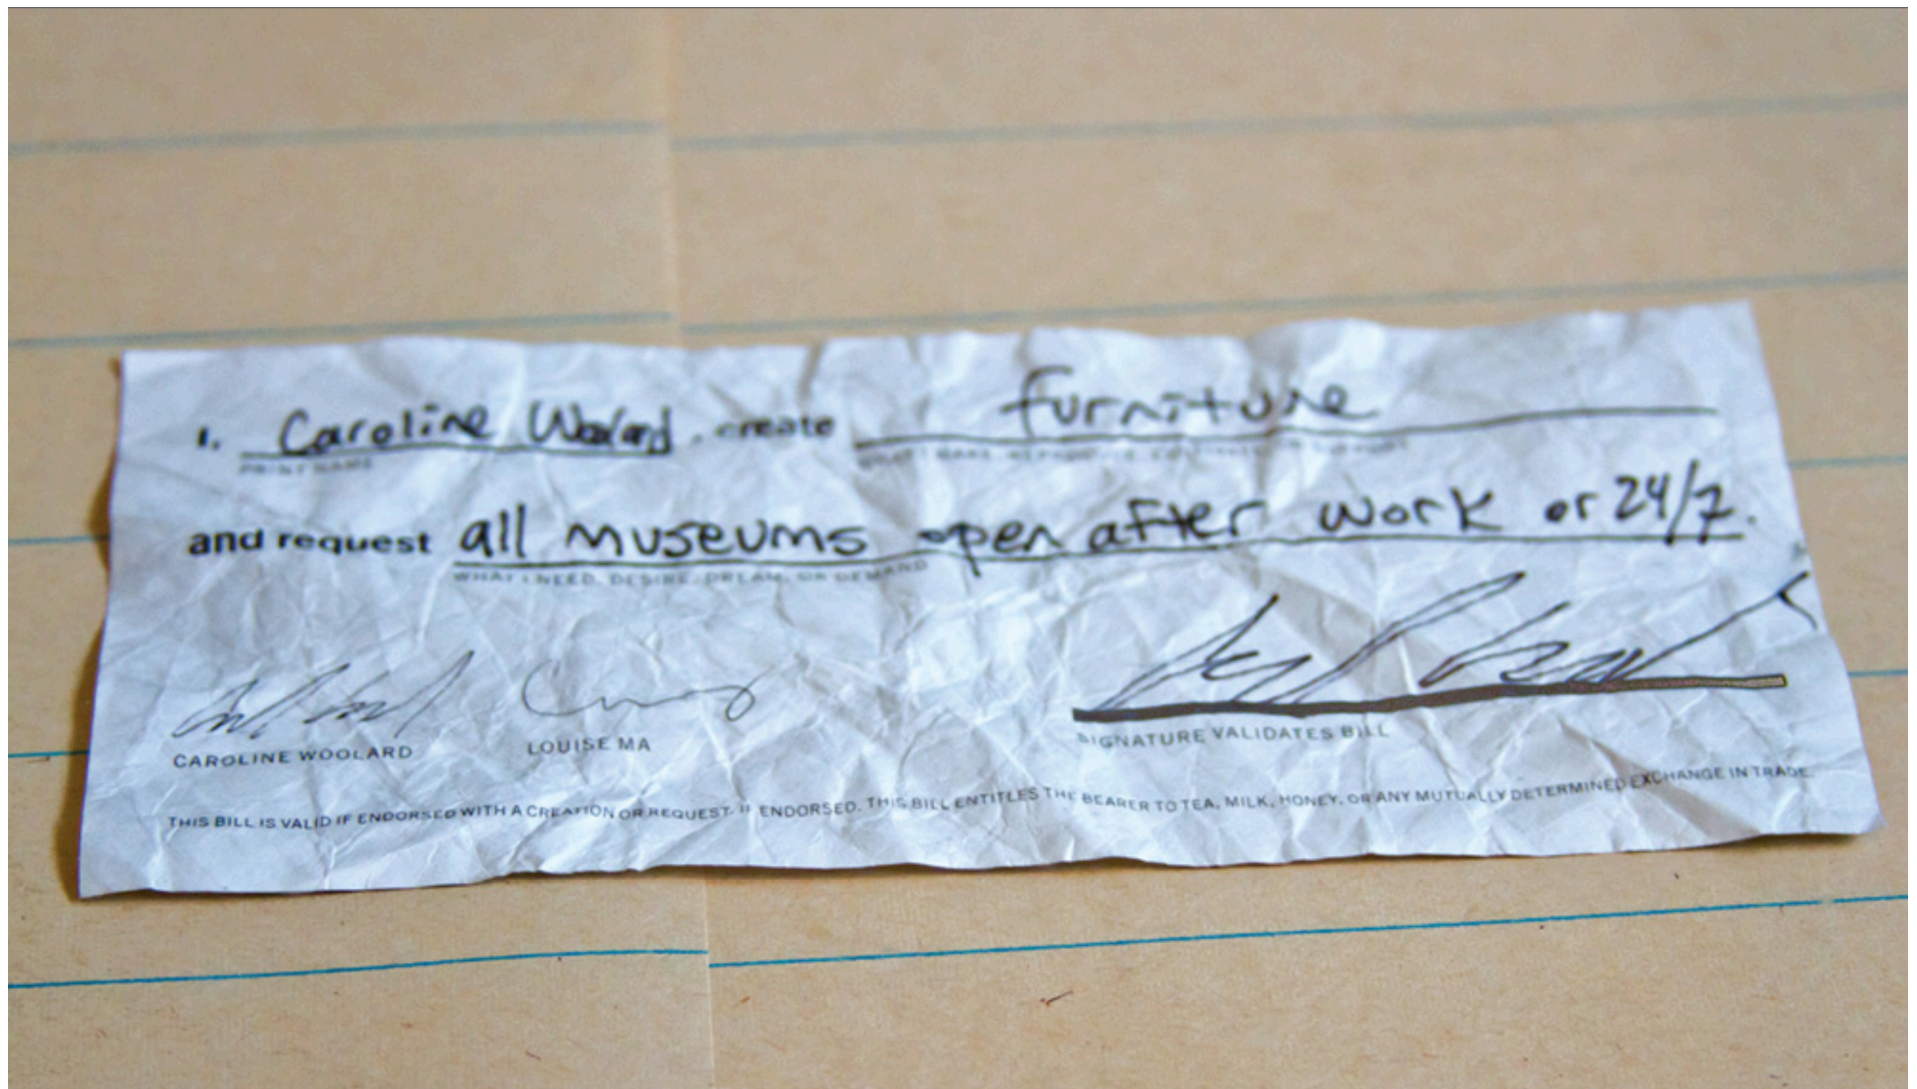 I, Caroline Woolard, create furniture
PRINT NAME
and request all museums open after work or 24/7.
WHAT I NEED, DESIRE, DREAM, OR DEMAND
CAROLINE WOOLARD LOUISE MA SIGNATURE VALIDATES BILL
THIS BILL IS VALID IF ENDORSED WITH A CREATION OR REQUEST. IF ENDORSED, THIS BILL ENTITLES THE BEARER TO TEA, MILK, HONEY, OR ANY MUTUALLY DETERMINED EXCHANGE IN TRADE.